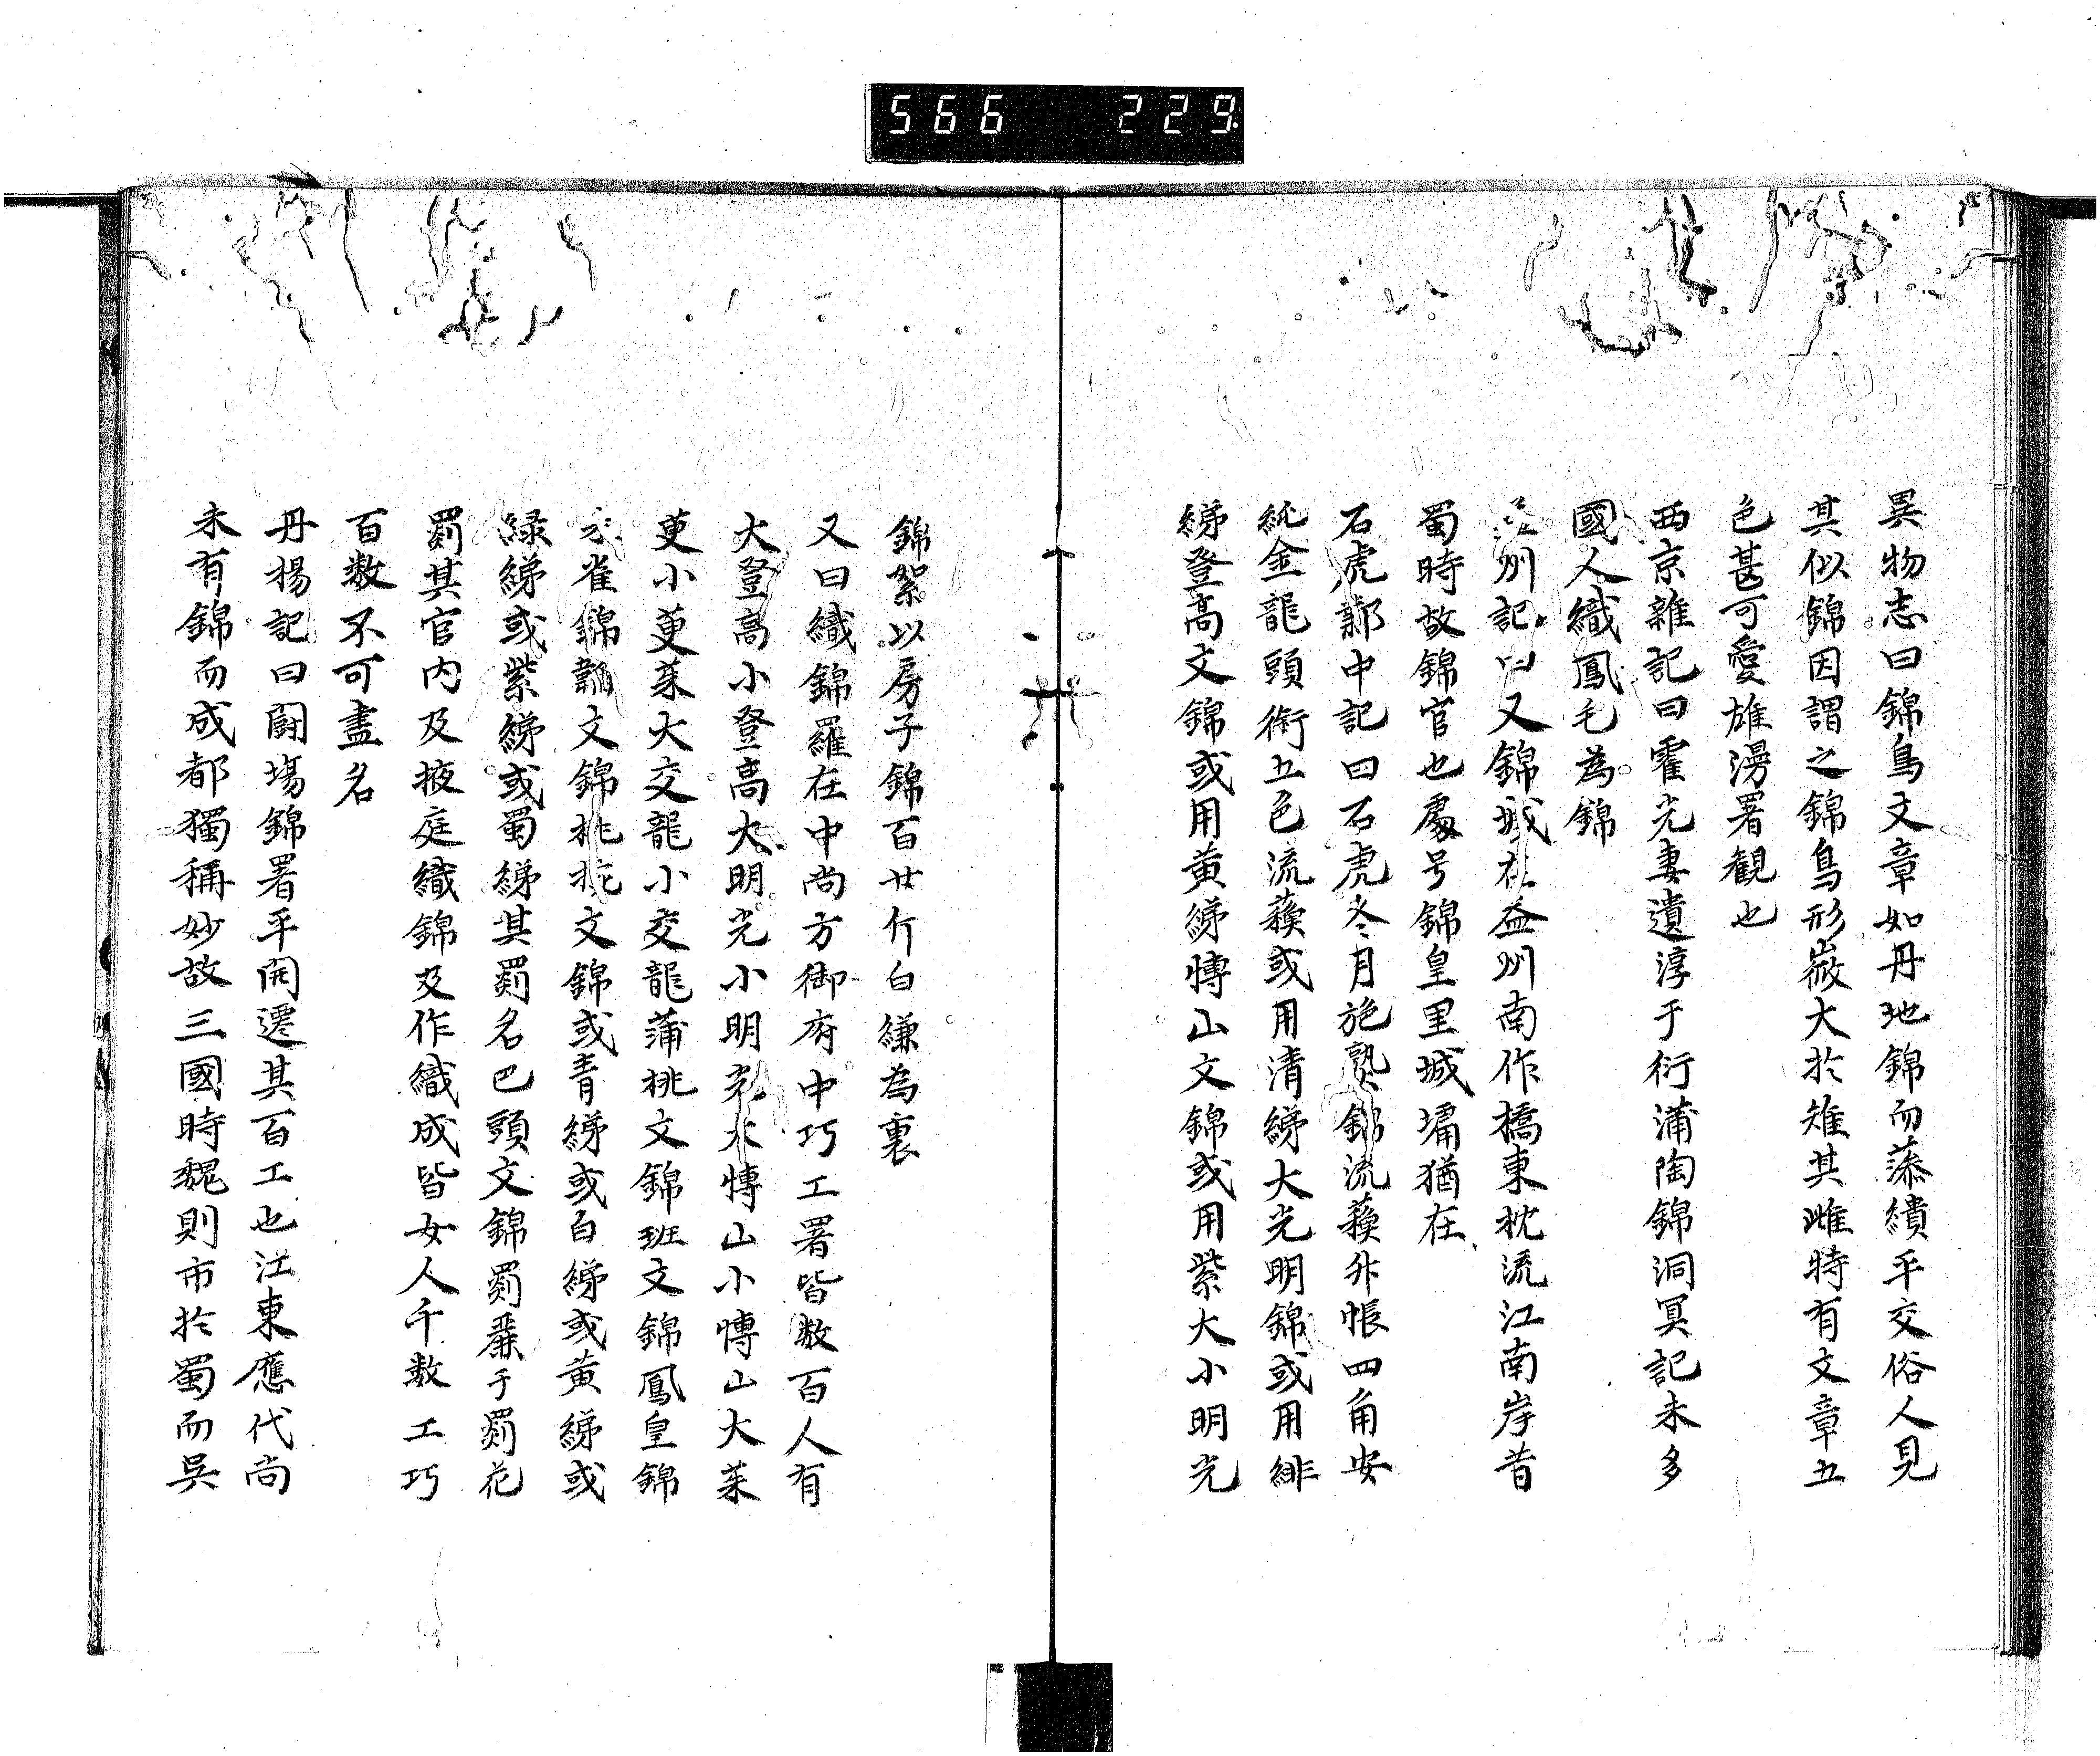 566 229
異物志曰錦鳥文章如丹地錦而蔆繢平交俗人見
其似錦因謂之錦鳥形㣲大於雉其雌特有文章五
色甚可愛雄漫署観也
西京雜記曰霍光妻遺淳于衍蒲陶錦洞冥記未多
國人織鳳毛為錦
州記曰又錦城在益州南作橋東枕流江南岸昔
蜀時故錦官也處号錦皇里城墉猶在
石虎鄴中記曰石虎冬月施熟錦流蘓外帳四角安
純金龍頭銜五色流蘓或用清綈大光明錦或用緋
綈登髙文錦或用黄綈博山文錦或用紫大小明光
錦絮以房子錦百廿斤白縑為裏
又曰織錦羅在中尚方御府中巧工署皆数百人有
大登高小登高大明光小明光大博山小博山大茱
萸小茱萸大交龍小交龍蒲桃文錦班文錦鳳皇錦
朱雀錦韜文錦桃核文錦或青綈或白綈或黄綈或
緑綈或紫綈或蜀綈其罽名巴頭文錦罽鹿子罽花
罽其官内及掖庭織錦及作織成皆女人千数工巧
百数不可盡名
丹楊記曰闘場錦署平開遷其百工也江東應代尚
未有錦而成都獨稱妙故三國時魏則市於蜀而吳